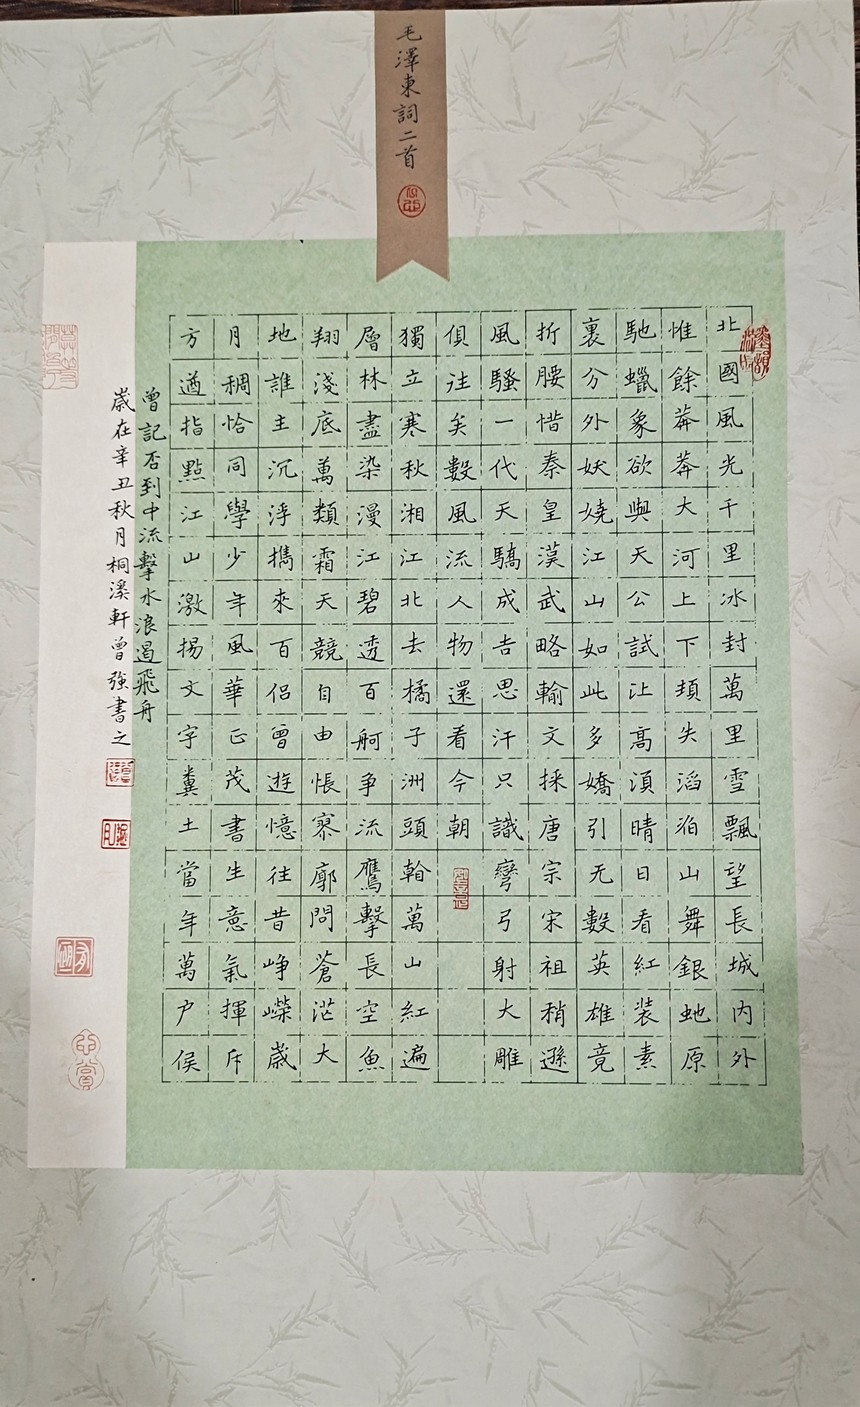 毛澤東詞二首
北國風光千里冰封萬里雪飄望長城内外
惟餘莽莽大河上下頓失滔滔山舞銀虵原
馳蠟象欲與天公試比高須晴日看紅裝素
裹分外妖嬈江山如此多嬌引无數英雄竞
折腰惜秦皇漢武略輸文採唐宗宋祖稍遜
風騷一代天驕成吉思汗只識彎弓射大雕
俱往矣數風流人物還看今朝
獨立寒秋湘江北去橘子洲頭翰萬山紅遍
層林盡染漫江碧透百舸争流鷹擊長空魚
翔淺底萬類霜天競自由悵寥廓問蒼茫大
地誰主沉浮攜來百侣曾遊憶往昔崢嶸歲
月稠恰同學少年風華正茂書生意氣揮斥
方遒指點江山激揚文字糞土當年萬户侯
曾記否到中流擊水浪遏飛舟
歲在辛丑秋月桐溪軒曾強書之